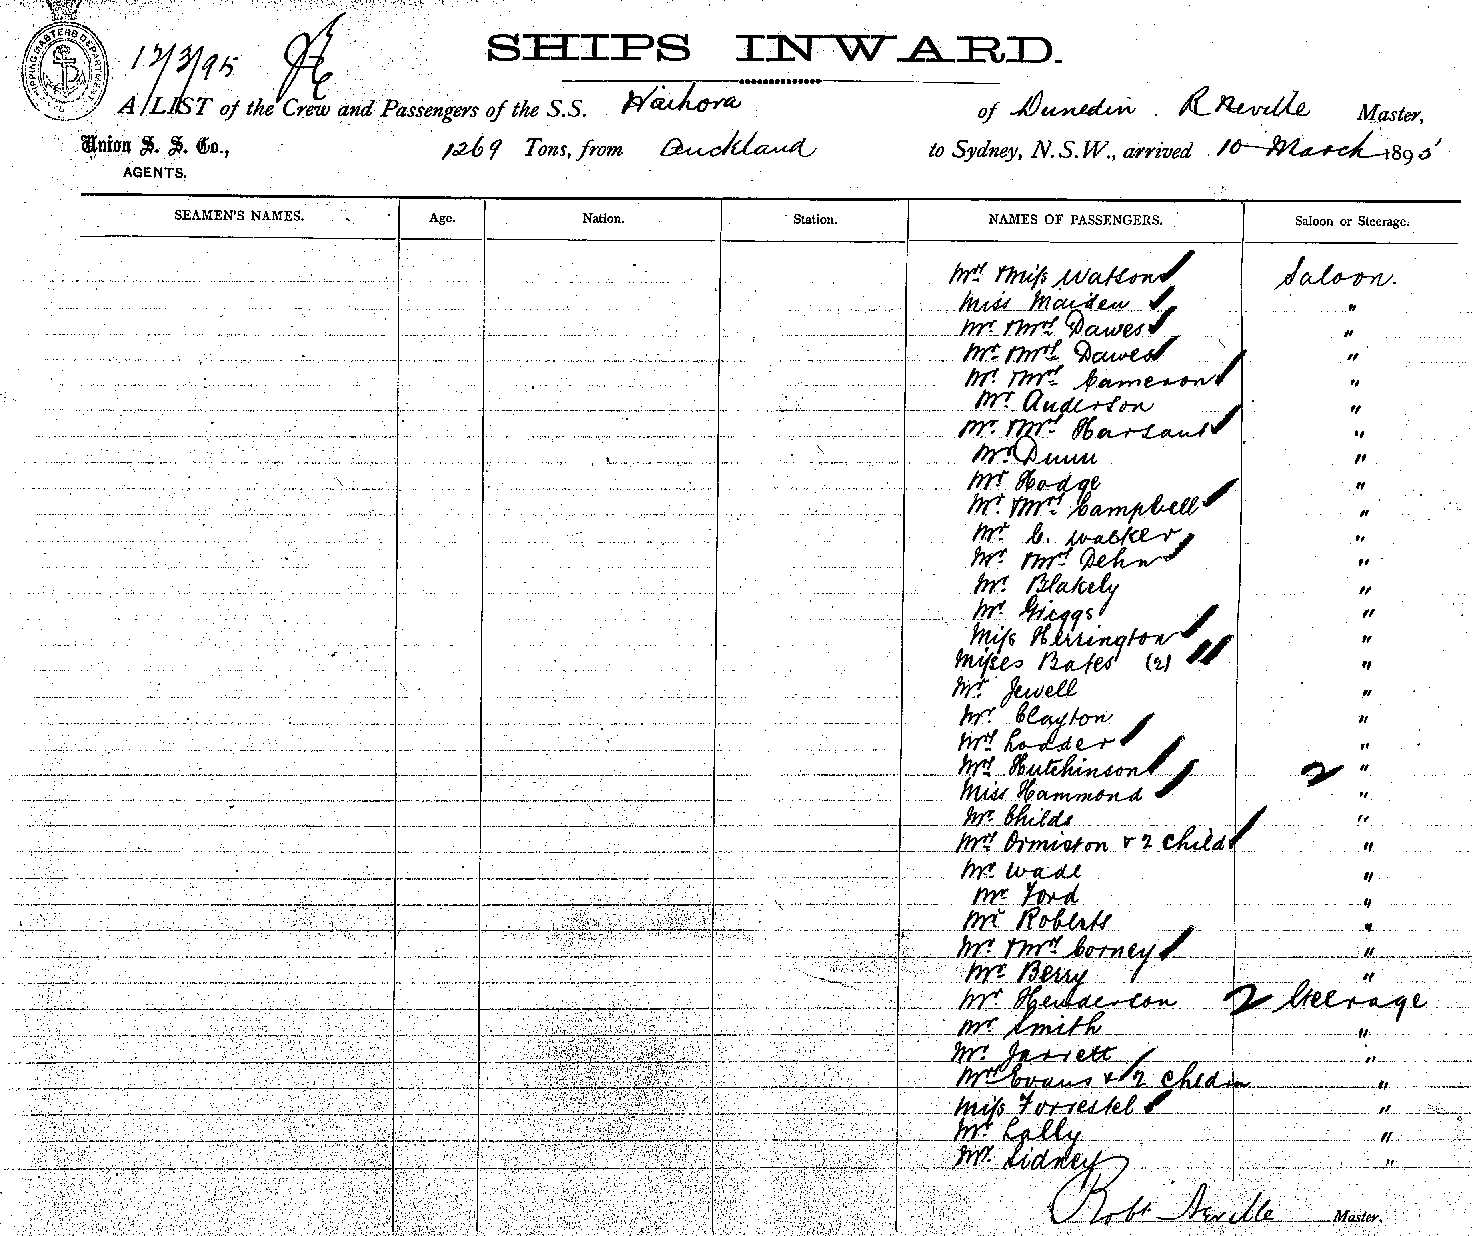 SHIPPING MASTERS DEPARTMENT
12/3/95
SHIPS INWARD.
A LIST of the Crew and Passengers of the S.S. Waihora of Dunedin. R Neville Master,
Union S. S. Co., AGENTS. 1269 Tons, from Auckland to Sydney, N.S.W., arrived 10 March 1895
SEAMEN'S NAMES. Age. Nation. Station. NAMES OF PASSENGERS. Saloon or Steerage.
Mrs & Miss Watson Saloon.
Miss Maiden "
Mr & Mrs Dawes "
Mr & Mrs Dawes "
Mr & Mrs Cameron "
Mr Anderson "
Mr & Mrs Harsant "
Mr Dunn "
Mr Hodge "
Mr & Mrs Campbell "
Mr C. Walker "
Mr & Mrs Dehn "
Mr Blakely "
Mr Griggs "
Miss Herrington "
Misses Bates (2) "
Mr Jewell "
Mr Clayton "
Mrs Lodder "
Mrs Hutchinson 2 "
Miss Hammond "
Mr Childs "
Mrs Ormiston & 2 Child "
Mr Wade "
Mr Ford "
Mr Roberts "
Mr & Mrs Corney "
Mr Berry "
Mr Henderson 2 Steerage
Mr Smith "
Mr Jarrett "
Mrs Evans & 2 Childn "
Miss Forrestel "
Mr Lally "
Mr Sidney "
Robt Neville Master.